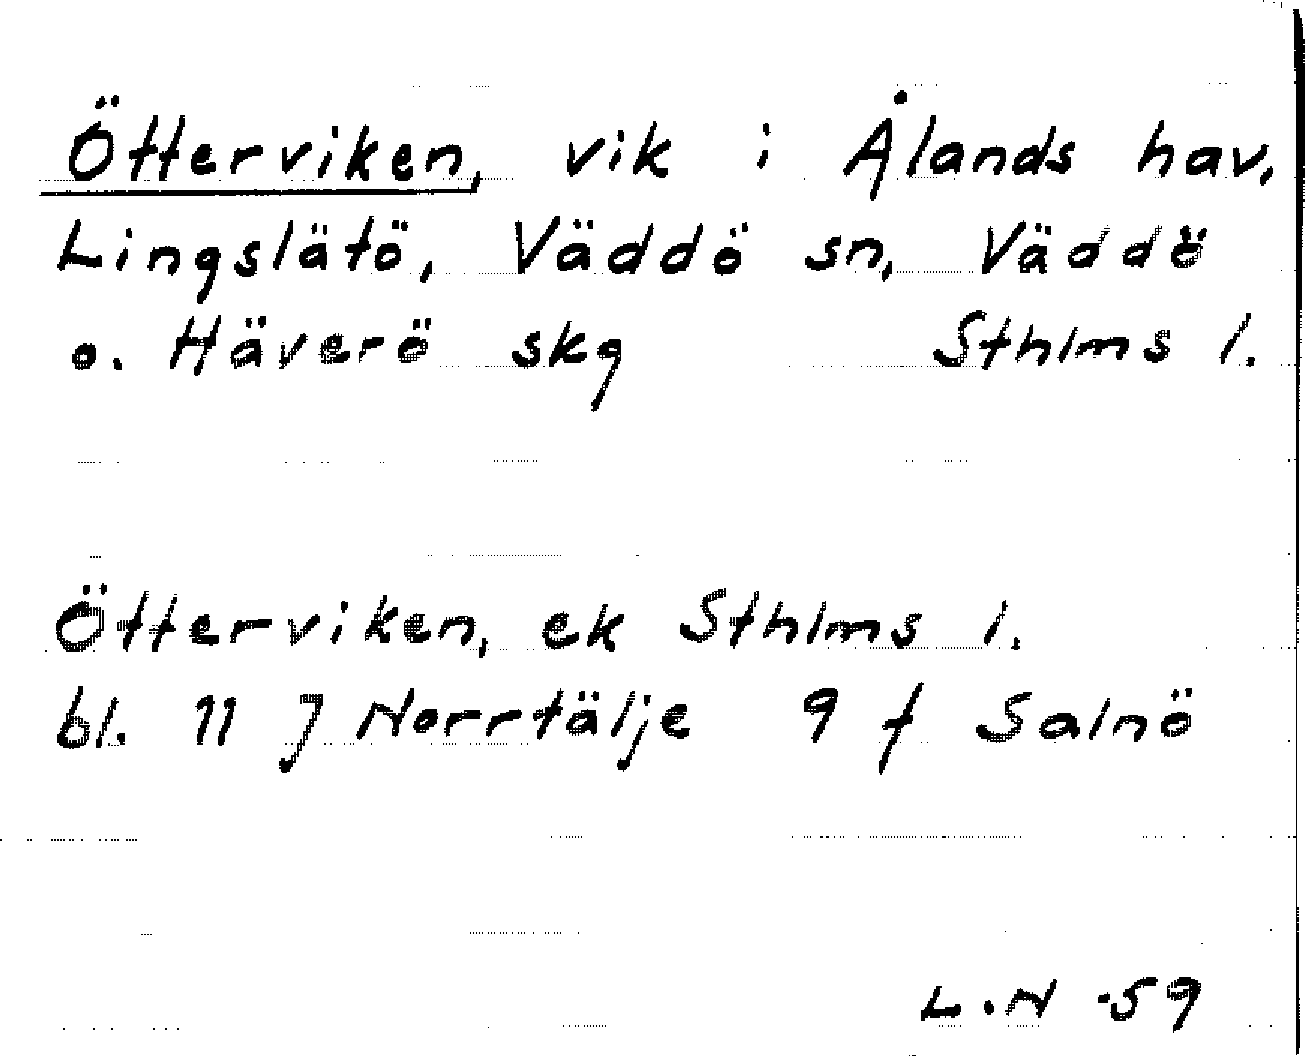 Ötterviken, vik i Ålands hav,
Lingslätö, Väddö sn, Väddö
o. Häverö skg Sthlms l.
Ötterviken, ek Sthlms l.
bl. 11 J Norrtälje 9 f Salnö
L.N -59